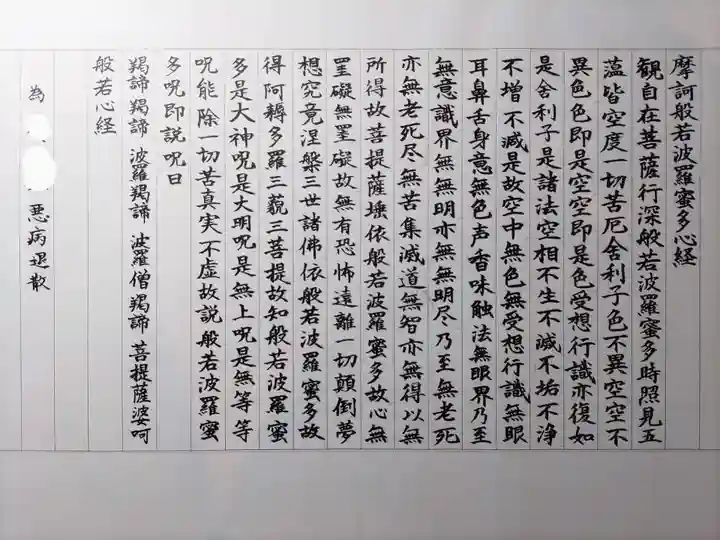 摩訶般若波羅蜜多心経
観自在菩薩行深般若波羅蜜多時照見五
蘊皆空度一切苦厄舍利子色不異空空不
異色色即是空空即是色受想行識亦復如
是舍利子是諸法空相不生不滅不垢不浄
不増不減是故空中無色無受想行識無眼
耳鼻舌身意無色声香味触法無眼界乃至
無意識界無無明亦無無明尽乃至無老死
亦無老死尽無苦集滅道無智亦無得以無
所得故菩提薩埵依般若波羅蜜多故心無
罣礙無罣礙故無有恐怖遠離一切顛倒夢
想究竟涅槃三世諸佛依般若波羅蜜多故
得阿耨多羅三藐三菩提故知般若波羅蜜
多是大神呪是大明呪是無上呪是無等等
呪能除一切苦真実不虚故説般若波羅蜜
多呪即説呪曰
羯諦 羯諦 波羅羯諦 波羅僧羯諦 菩提薩婆呵
般若心経
為 悪病退散